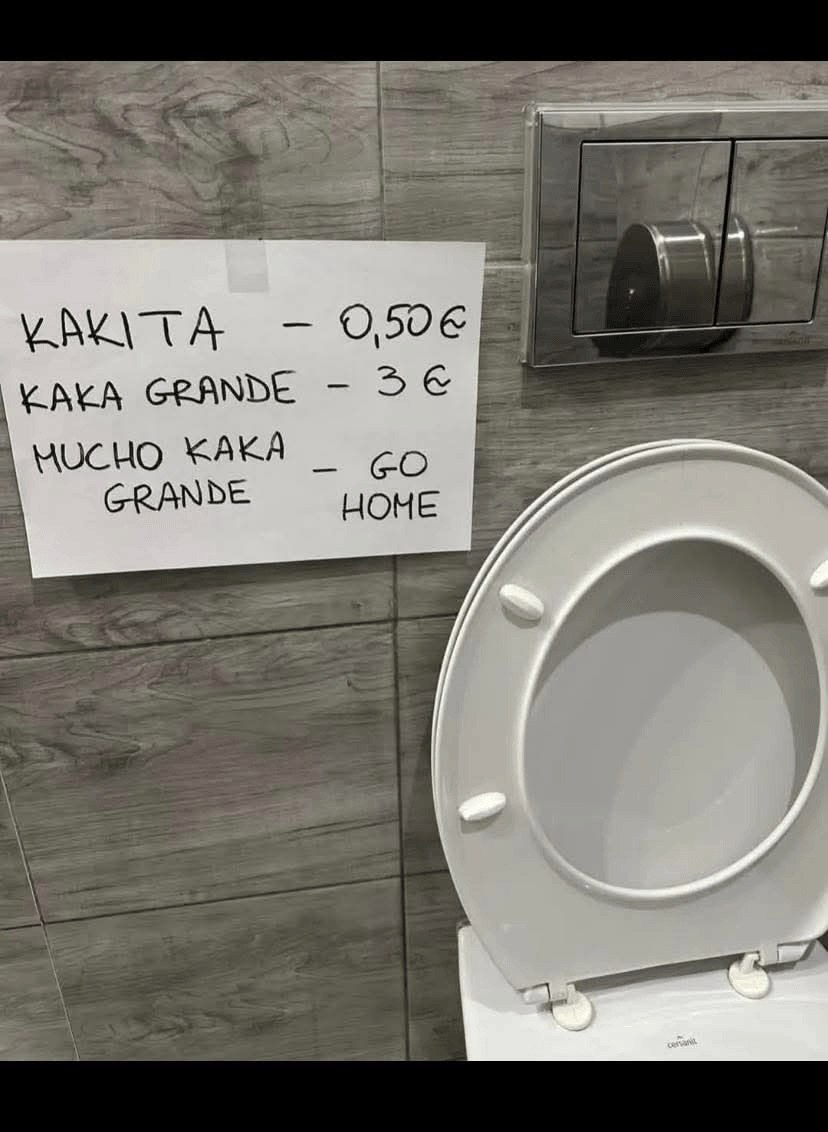 KAKITA - 0,50 €
KAKA GRANDE - 3 €
MUCHO KAKA
GRANDE - GO
HOME
cersanit